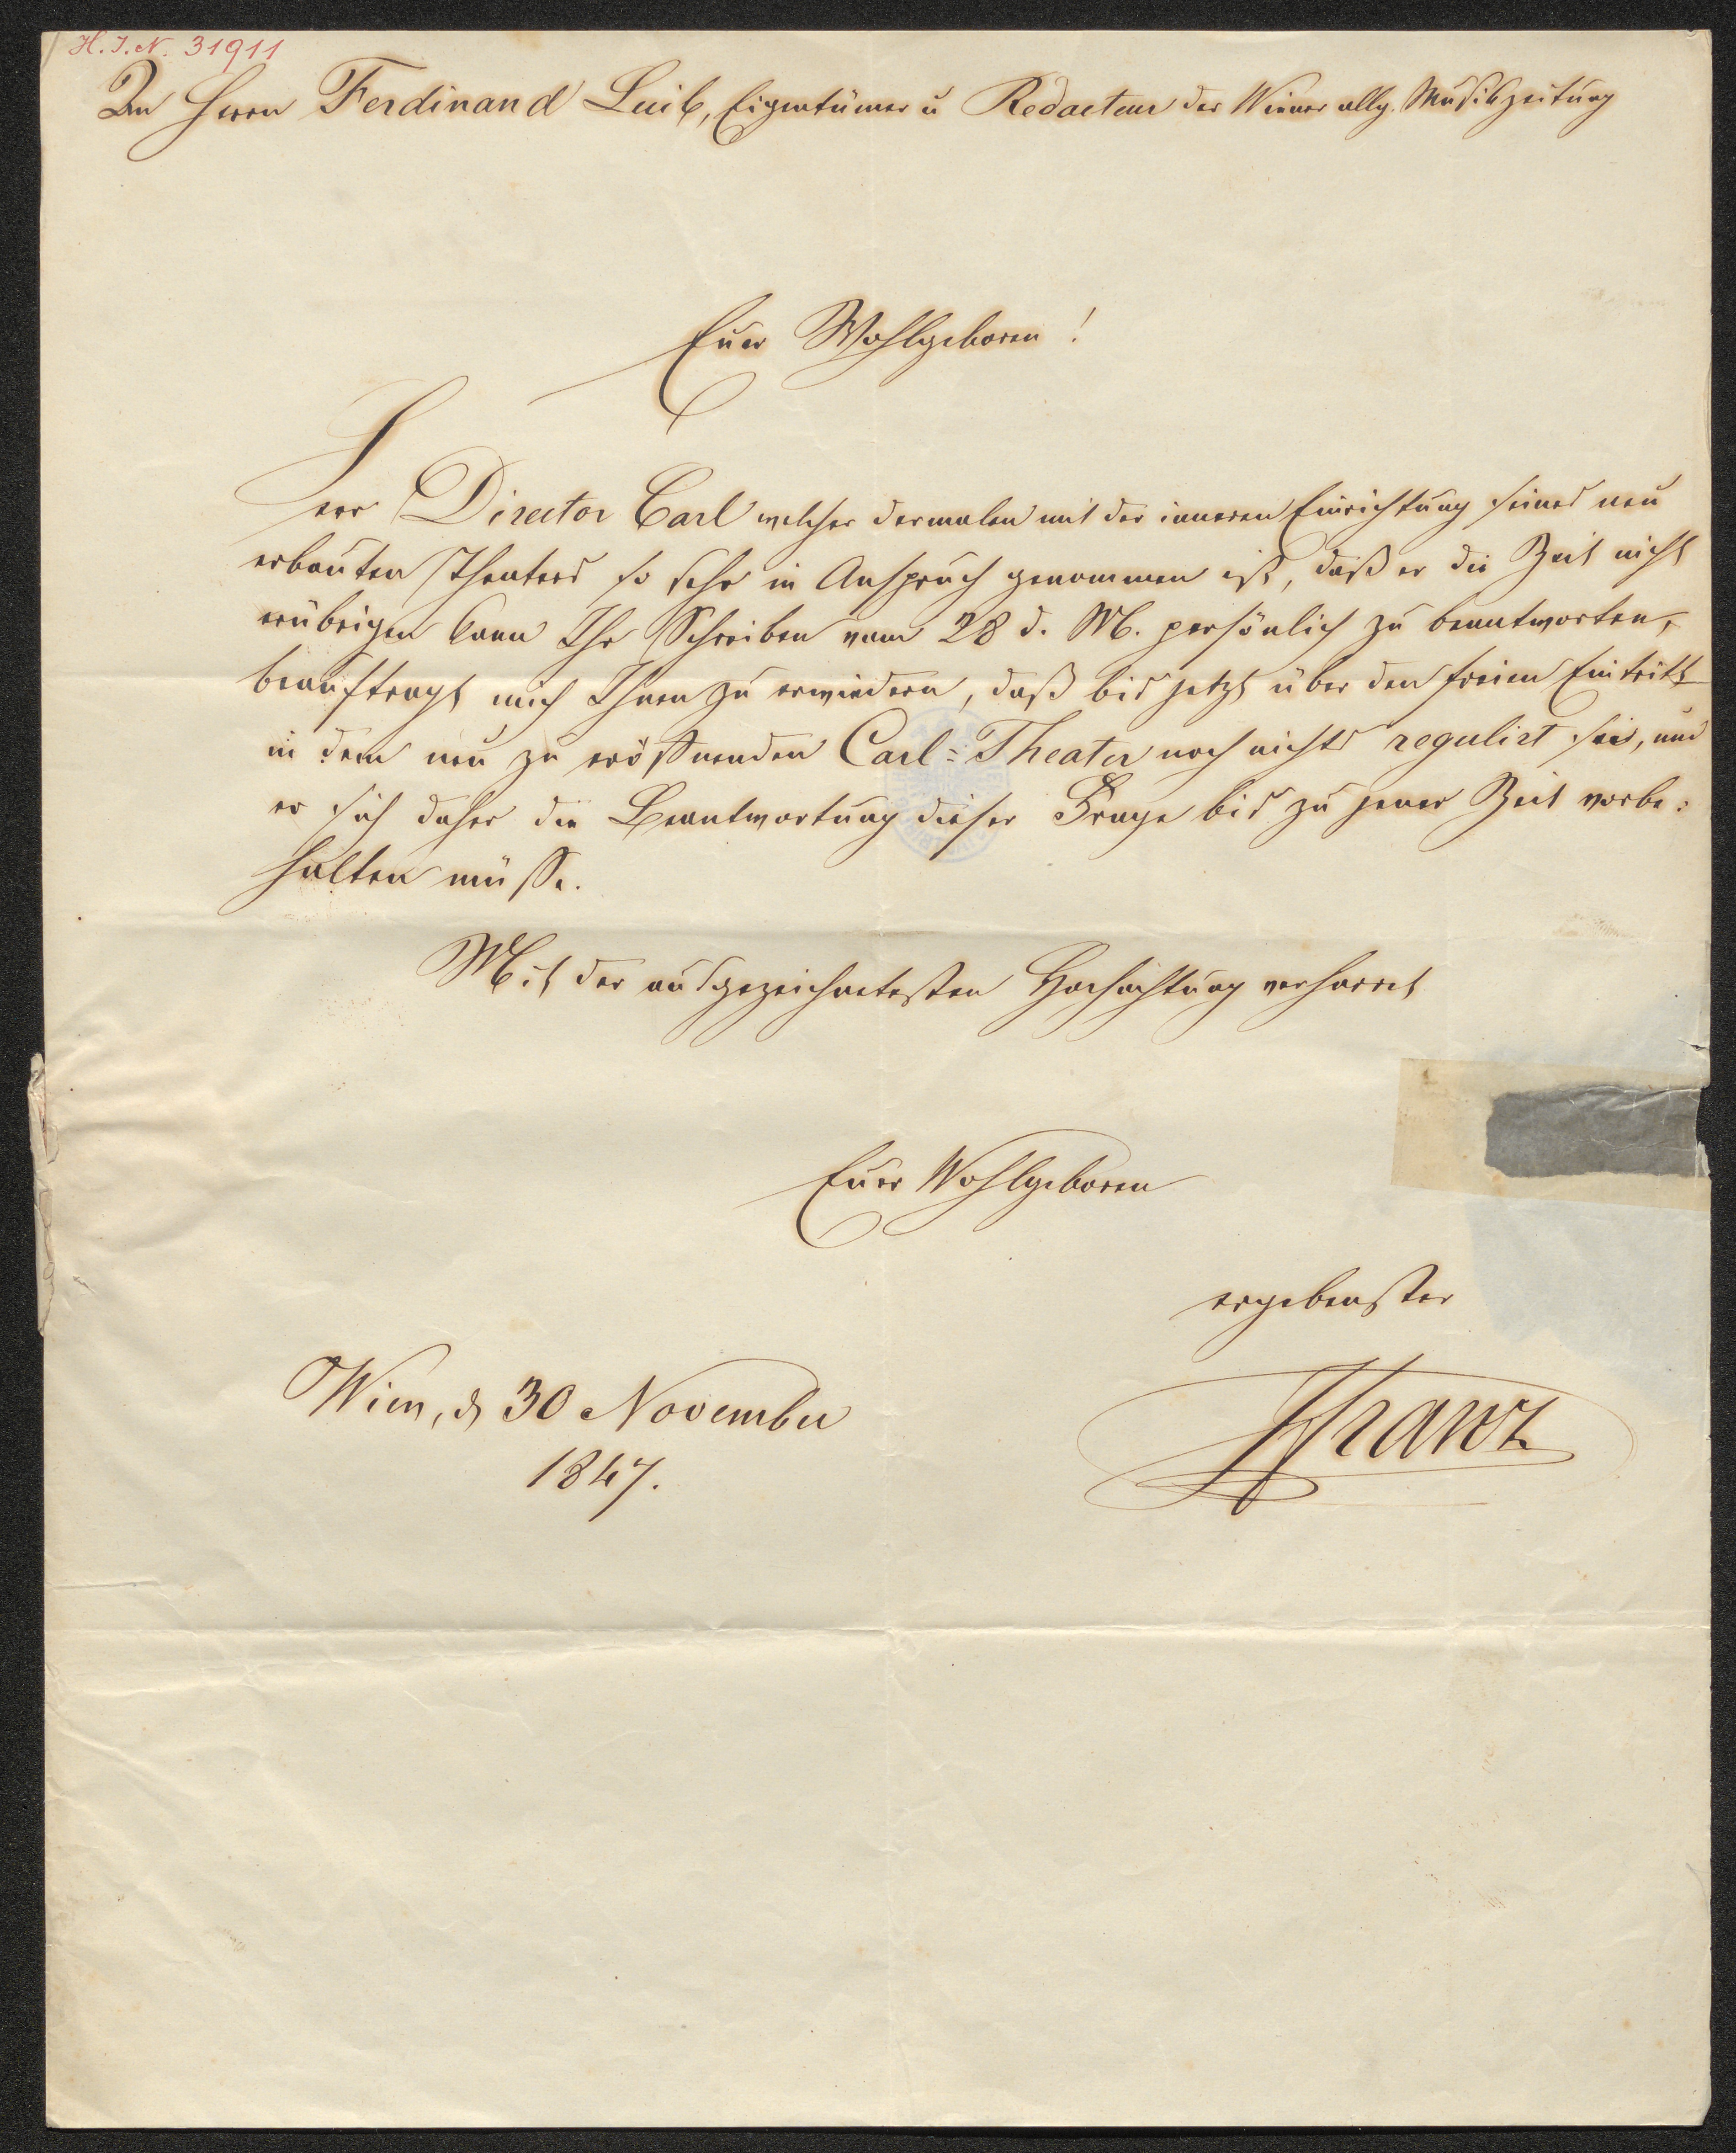 H. I. N. 31911
An Herrn Ferdinand Luib, Eigentümer u Redacteur der Wiener allg. Musikzeitung
Euer Wohlgeboren!
Herr Director Carl welcher dermalen mit der inneren Einrichtung seines neu
erbauten Theaters so sehr in Anspruch genommen ist, daß er die Zeit nicht
erübrigen kann Ihr Schreiben vom 28 d. M. persönlich zu beantworten,
beauftragt mich Ihnen zu erwiedern, daß bis jetzt über den freien Eintritt
in dem neu zu eröffnenden Carl-Theater noch nichts regulirt sei, und
er sich daher die Beantwortung dieser Frage bis zu jener Zeit vorbe:
halten müsse.
Mit der ausgezeichnetesten Hochachtung verharret
Euer Wohlgeboren
ergebenster
Wien, d 30 November
1847.
Franz